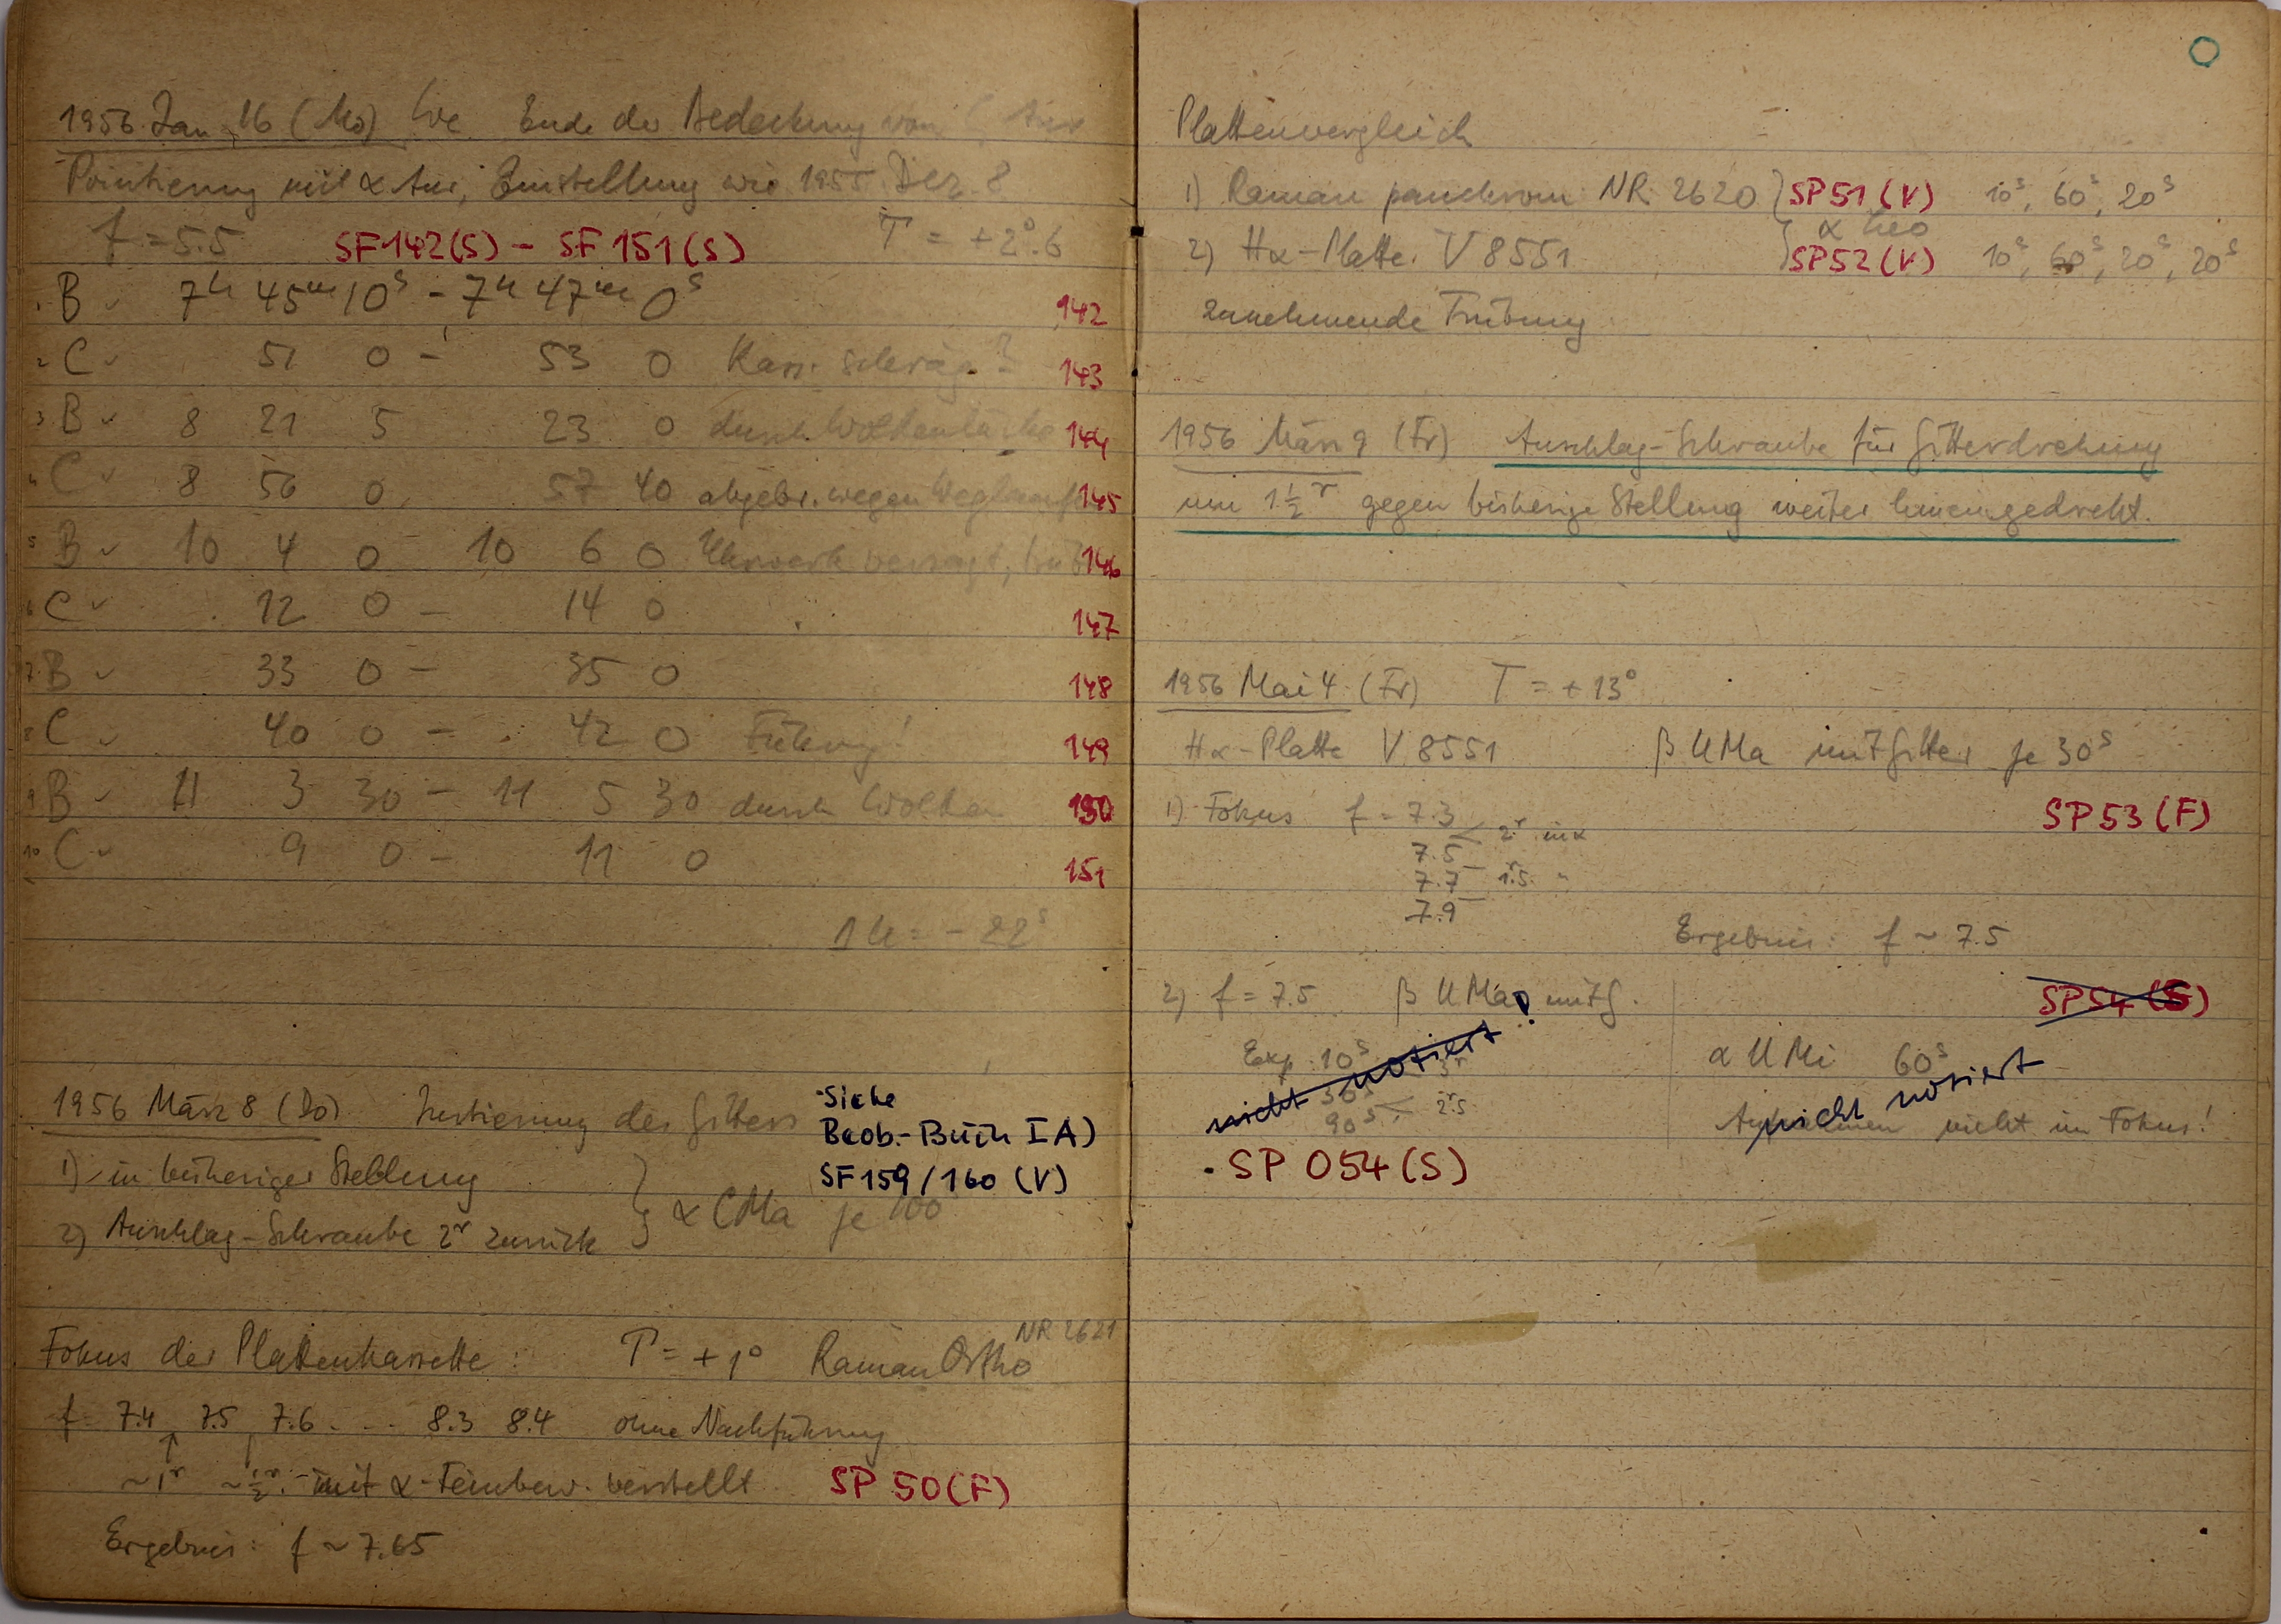 1956 Jan. 16 (Mo) Ende der Bedeckung von ζ Aur
Pointierung mit α Aur, Einstellung wie 1955 Dez. 8
f = 5.5 SF142(S) - SF151(S) T = +2°.6
1 B ✓ 7h 45m 10s - 7h 47m 0s 142
2 C ✓ 51 0 - 53 0 Kass. schräg? 143
3 B ✓ 8 21 5 23 0 durch Wolkenlücke 144
4 C ✓ 8 56 0 57 40 abgebr. wegen 145
5 B ✓ 10 4 0 - 10 6 0 Uhrwerk versagt, 146
6 C ✓ 12 0 - 14 0 147
7 B ✓ 33 0 - 35 0 148
8 C ✓ 40 0 - 42 0 Führung! 149
9 B ✓ 11 3 30 - 11 5 30 durch Wolken 150
10 C ✓ 9 0 - 11 0 151
= -22s
1956 März 8 (Do) Justierung des Gitters
Siehe
Beob.-Buch I A)
SF159/160 (V)
1) in bisheriger Stellung
2) Anschlag-Schraube 2r zurück
} α CMa je 100
Fokus der Plattenkassette: T = +1° Raman Ortho NR 2621
f = 7.4 7.5 7.6 ... 8.3 8.4 ohne Nachführung
~1r ~½r mit α-Feinbew. verstellt SP 50(F)
Ergebnis: f ~ 7.65
Plattenvergleich
1) Raman panchrom NR 2620 } SP51(V) 10s, 60s, 20s
α Leo
2) Hα-Platte V 8551 SP52(V) 10s, 60s, 20s, 20s
zunehmende Trübung
1956 März 9 (Fr) Anschlag-Schraube für Gitterdrehung
um 1½r gegen bisherige Stellung weiter hineingedreht.
1956 Mai 4 (Fr) T = +13°
Hα-Platte V 8551 β UMa mit Gitter je 30s
1) Fokus f = 7.3 SP53(F)
2r in α
7.5
7.7 1r.5 "
7.9
Ergebnis: f ~ 7.5
2) f = 7.5 β UMa mit G. SP54(S)
Exp. 10s 3r
30s
90s 2r.5
nicht notiert!
α UMi 60s
nicht notiert
Aufnahmen nicht im Fokus!
SP 054(S)